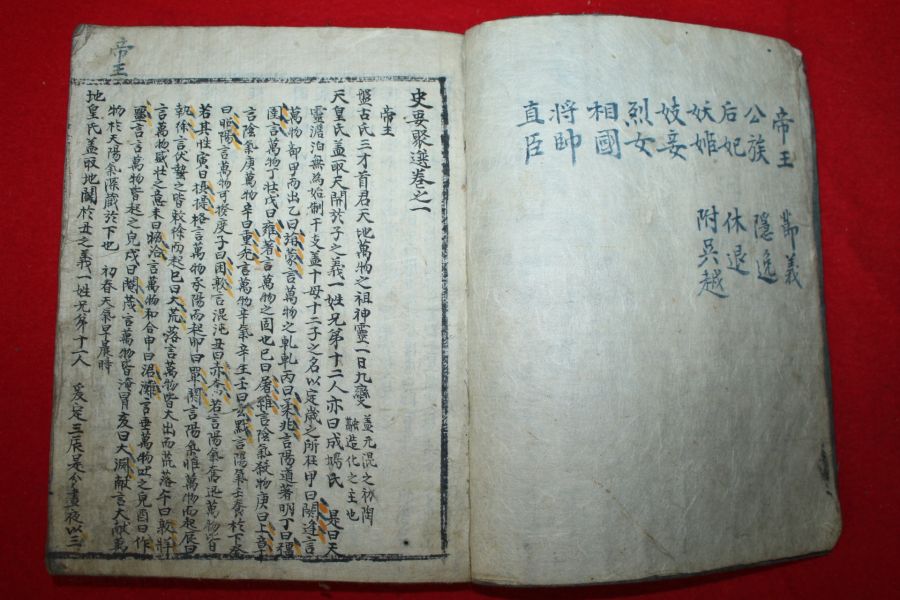 帝王 節義
公族 隱逸
后妃 休退
妖姬 附吳越
妓妾
烈女
相國
将帥
直臣
帝王
史要聚選卷之一
帝王
盤古氏三才首君天地萬物之祖神靈一日九變 盖元混之初陶融造化之主也
天皇氏盖取天開於子之義一姓兄弟十二人亦曰成鳩氏 是曰天
靈澹泊無為始制干支盖十母十二子之名以定歲之所在甲曰閼逢言
萬物剖甲而出乙曰旃蒙言萬物之軋軋丙曰柔兆言陽道著明丁曰彊
圉言萬物丁壮戊曰雍著言萬物之固也巳曰屠維言陰氣殺物庚曰上章
言陰氣庚萬物辛曰重光言萬物辛氣辛生壬曰玄黓言陽氣壬養於下癸
曰昭陽言萬物可揆度子曰困敦言混沌丑曰赤奮若言陽氣奮迅萬物以
若其性寅曰攝提格言萬物承陽而起卯曰單閼言陽氣推萬物而起辰曰
執徐言伏蟄之皆敕徐而起巳曰大荒落言萬物皆大出而荒落午曰敦牂
言萬物盛壮之意未曰協洽言萬物和合申曰涒灘言垂萬物吐之皃酉曰作
噩言萬物皆起之皃戌曰閹茂言萬物皆淹冒亥曰大淵献言大献萬
物於天陽氣深藏於下也 初春天氣早晨時
地皇氏盖取地闢於丑之義一姓兄弟十一人 爰定三辰是分晝夜以三